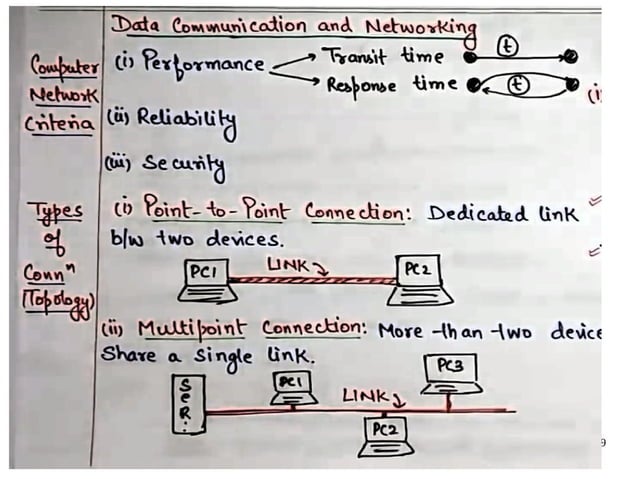 Data Communication and Networking
Computer
Network
Criteria
(i) Performance
Transit time
t
Response time
t
(i
(ii) Reliability
(iii) Security
Types
of
Connⁿ
(Topology)
(i) Point-to-Point Connection: Dedicated link
b/w two devices.
PC1
LINK
PC2
(ii) Multipoint Connection: More than two device
Share a single link.
SER.
PC1
LINK
PC3
PC2
9